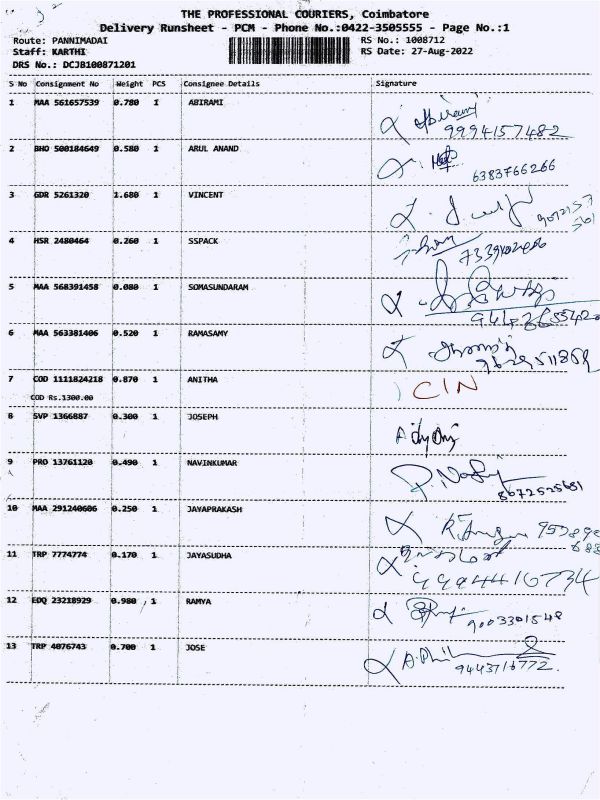 THE PROFESSIONAL COURIERS, Coimbatore
Delivery Runsheet - PCM - Phone No.:0422-3505555 - Page No.:1
Route: PANNIMADAI RS No.: 1008712
Staff: KARTHI RS Date: 27-Aug-2022
DRS No.: DCJB100871201
S No Consignment No Weight PCS Consignee Details Signature
1 MAA 561657539 0.780 1 ABIRAMI
9994157482
2 BHO 500184649 0.580 1 ARUL ANAND
6383766266
3 GDR 5261320 1.680 1 VINCENT
4 HSR 2480464 0.260 1 SSPACK
5 MAA 568391458 0.080 1 SOMASUNDARAM
6 MAA 563381406 0.520 1 RAMASAMY
7 COD 1111824218 0.870 1 ANITHA CIN
COD Rs.1300.00
8 SVP 1366887 0.300 1 JOSEPH
9 PRO 13761120 0.490 1 NAVINKUMAR
8072525681
10 MAA 291240606 0.250 1 JAYAPRAKASH
11 TRP 7774774 0.170 1 JAYASUDHA
9994416734
12 EDQ 23218929 0.980 1 RAMYA
9003301548
13 TRP 4076743 0.700 1 JOSE
9443716772